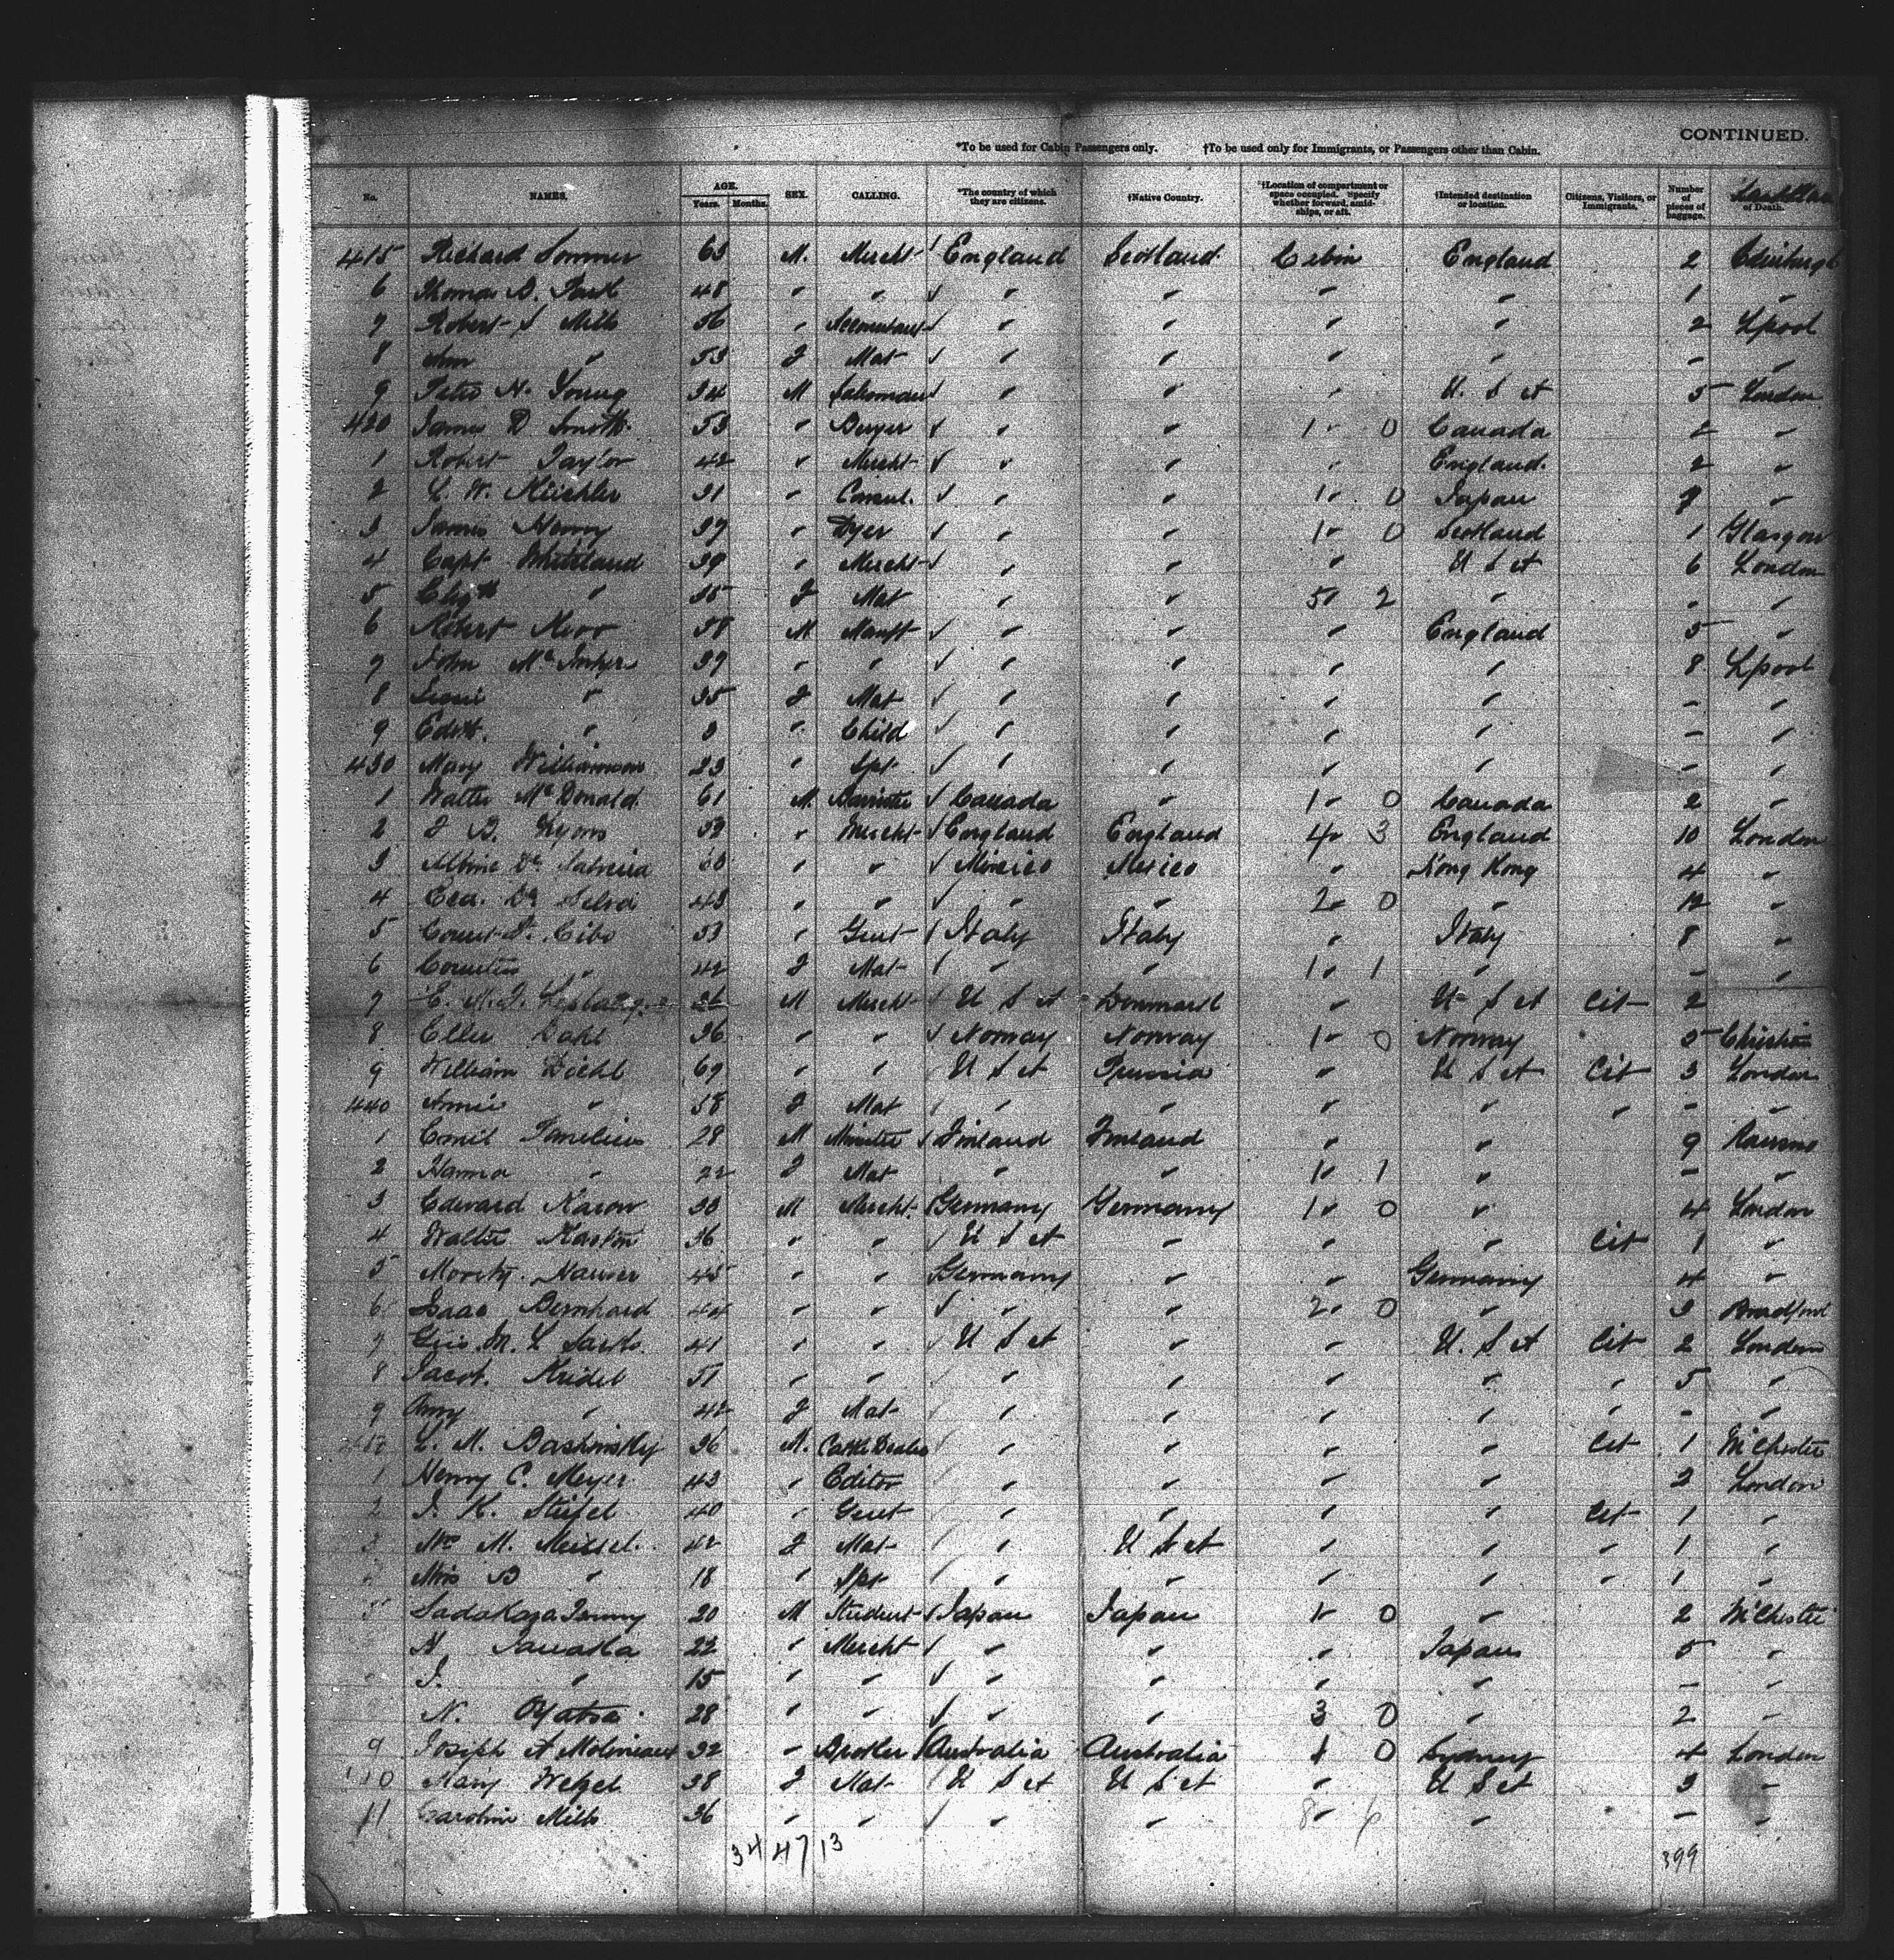 CONTINUED.
*To be used for Cabin Passengers only. †To be used only for Immigrants, or Passengers other than Cabin.
No. NAMES. AGE. Years. Months. SEX. CALLING. *The country of which they are citizens. †Native Country. †Location of compartment or space occupied. Specify whether forward, amidships, or aft. †Intended destination or location. Citizens, Visitors, or Immigrants. Number of pieces of baggage. of Death.
415 Richard Sommer 63 M. Mercht England Scotland Cabin England 2 Edinburgh
6 Thomas D. 48 " " " " " " 1 "
7 Robert S Mills 56 " Accountant " " " " 2 Lpool
8 Ann " 53 F Mat " " " " - "
9 Peter H. Young 34 M Salesman " " " U. S A 5 London
420 James D Smith 53 " Buyer " " 1 0 Canada 2 "
1 Robert Taylor 42 " Mercht " " " England 2 "
2 31 " Consul. " " 1 0 Japan "
3 James Henry 37 " Dyer " " 1 0 Scotland 1 Glasgow
4 Capt 39 " Mercht " " " U S A 6 London
5 " 35 F Mat " " 5 2 " - "
6 Robert Kerr 58 M Manft " " " England 5 "
7 John 39 " " " " " " 8 Lpool
8 " 35 F Mat " " " " - "
9 Edith " 3 " Child " " " " - "
430 Mary Williamson 23 " Spr " " " " - "
1 Walter McDonald 61 M. Barrister Canada " 1 0 Canada 2 "
2 J B. Lyons 53 " Mercht England England 4 3 England 10 London
3 " " Mexico Mexico " Hong Kong 4 "
4 43 " " " " 2 0 " 12 "
5 Count Cibo 53 " Gent Italy Italy " Italy 8 "
6 Countess " 42 F Mat " " 1 1 " - "
7 M Mercht U S A Denmark " U S A Cit 2
8 Eller Dahl 36 " " Norway Norway 1 0 Norway 5
9 William Diehl 69 " " U S A Prussia " U S A Cit 3 London
440 Annie " 58 F Mat " " " " " - "
1 Emil 28 M Minister Finland Finland " " 9
2 Hanna " 22 F Mat " " 1 1 " - "
3 Edward Karow 33 M Mercht. Germany Germany 1 0 " 4 London
4 Walter 36 " " U S A " " " Cit 1 "
5 45 " " Germany " " Germany 4 "
6 Isaac Bernhard 44 " " " " 2 0 " 3 Bradford
7 M. L 41 " " U S A " " U. S A Cit 2 London
8 Jacob. Kridel 51 " " " " " " " 5 "
9 Amy " 42 F Mat " " " " - "
L. M. Bashinsky 36 M. Cattle Dealer " " " " Cit 1 M'Chester
1 Henry C. Meyer 43 " Editor " " " " 2 London
2 J. K. Stiefel 40 " Gent " " " " Cit 1 "
3 M. Meissel. 42 F Mat " U S A " " " 1 "
Miss B " 18 " Spr " " " " " 1 "
5 20 M Student Japan Japan 1 0 " 2 M'Chester
H Tanaka 22 " Mercht " " " Japan 5 "
J. " 15 " " " " " " - "
N. 28 " " " " 3 0 " 2 "
9 Joseph A Molineaux 32 " Australia Australia 1 0 Sydney 4 London
10 Mary Wetzel 38 F Mat U S A U S A " U S A 3 "
11 Caroline Mills 36 " " " " 8 6 " - "
34 47 13 399